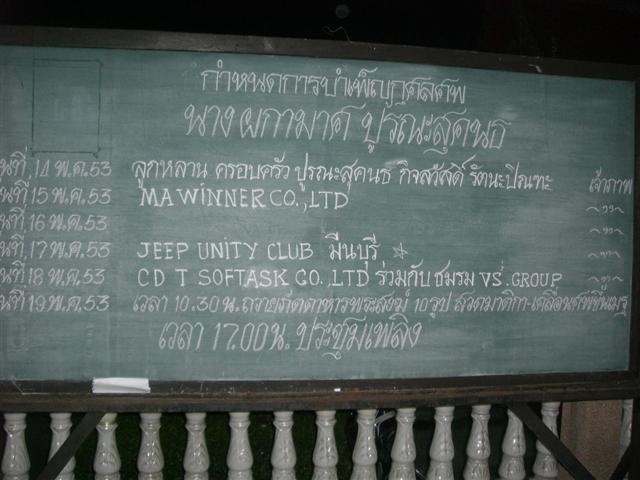 กำหนดการบำเพ็ญกุศลศพ
นาง ผกามาศ ปูรณะสุคนธ
นที่.14 พ.ค.53 ลูกหลาน ครอบครัว ปูรณะสุคนธ กิจสวัสดิ์ รัตนะปิณฑะ เจ้าภาพ
นที่ 15 พ.ค.53 MAWINNER CO.,LTD ~"~
นที่ 16 พ.ค.53 ~"~
นที่ 17 พ.ค.53 JEEP UNITY CLUB มีนบุรี ☆ ~"~
นที่ 18 พ.ค.53 CD T SOFTASK CO.,LTD ร่วมกับ ชมรม VS.GROUP ~"~
นที่ 19 พ.ค.53 เวลา 10.30 น. ถวายภัตตาหารพระสงฆ์ 10 รูป สวดมาติกา-เคลื่อนศพขึ้นเมรุ
เวลา 17.00 น. ประชุมเพลิง